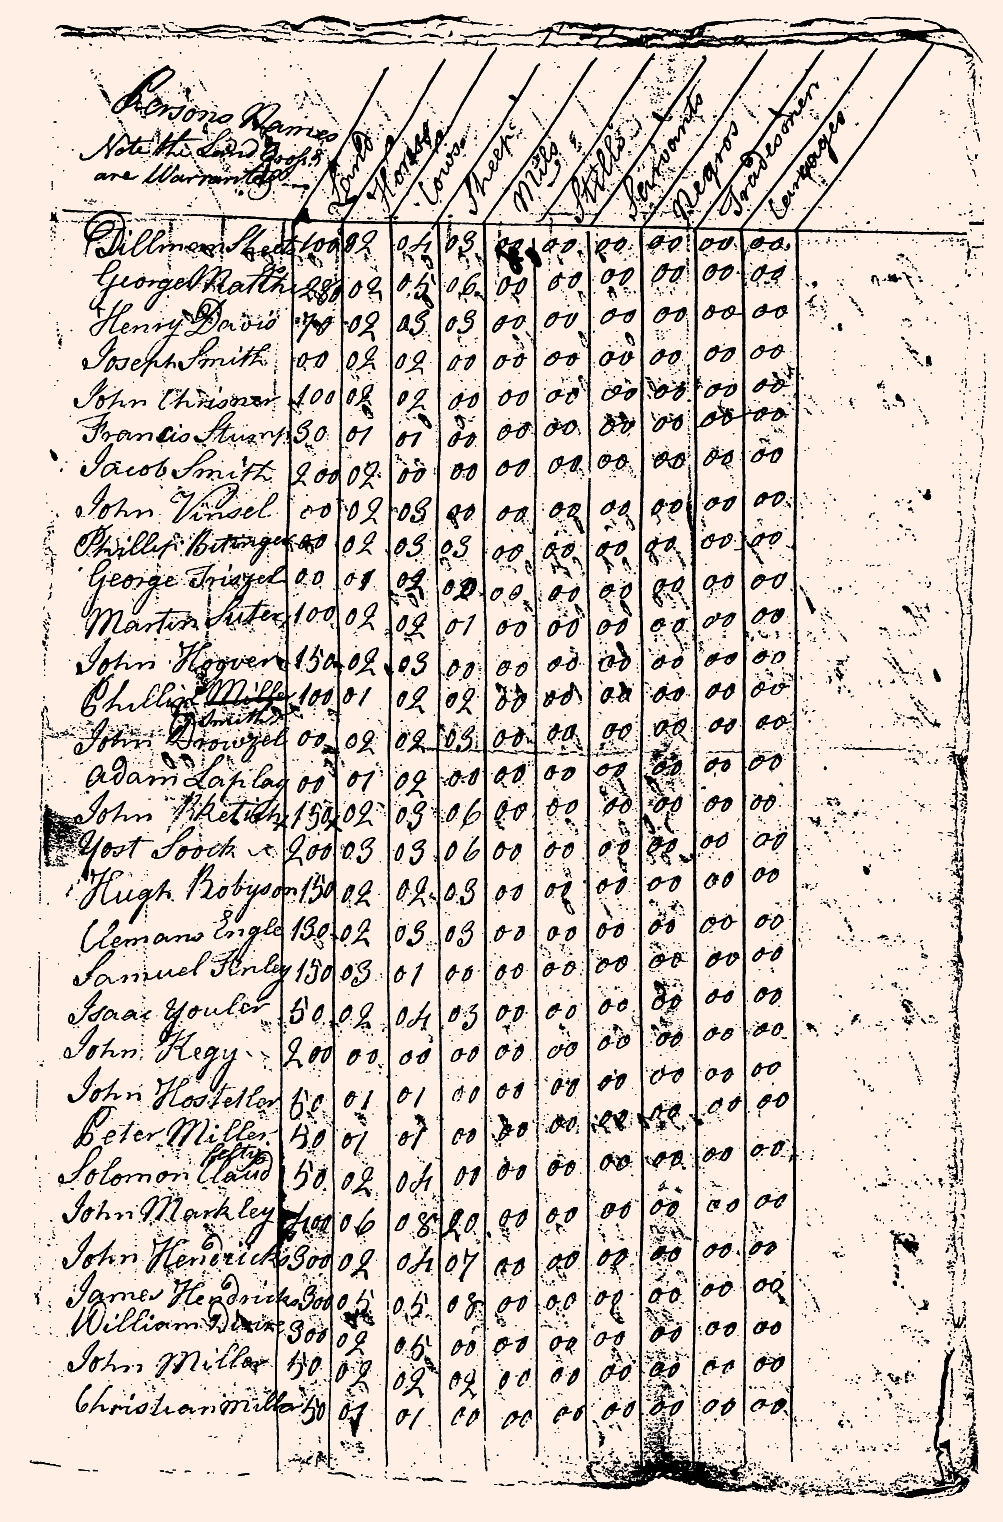 Persons Names
Note the Land
are Warranted
Land Horses Cows Sheep Mils Stills Servants Negros Tradesmen Carriages
Dillman Sheets 100 02 04 03 00 00 00 00 00 00
George Matthi 280 02 05 06 00 00 00 00 00 00
Henry David 70 02 03 03 00 00 00 00 00 00
Joseph Smith 00 02 02 00 00 00 00 00 00 00
John Chrisner 100 02 02 00 00 00 00 00 00 00
Francis Stump 30 01 01 00 00 00 00 00 00 00
Jacob Smith 200 02 00 00 00 00 00 00 00 00
John Vinsel 00 02 03 00 00 00 00 00 00 00
Phillip 00 02 03 03 00 00 00 00 00 00
George Frizzel 00 01 02 00 00 00 00 00 00
Martin Suter 100 02 02 01 00 00 00 00 00 00
John Hoover 150 02 03 00 00 00 00 00 00 00
Phillip Mille 100 01 02 02 00 00 00 00 00 00
Smith
John Drowzel 00 02 02 03 00 00 00 00 00 00
Adam Laplay 00 01 02 00 00 00 00 00 00 00
John 150 02 03 06 00 00 00 00 00 00
Yost Soock 200 03 03 06 00 00 00 00 00 00
Hugh Robyson 150 02 02 03 00 00 00 00 00 00
Clemans Engle 130 02 03 03 00 00 00 00 00 00
Samuel Finley 150 03 01 00 00 00 00 00 00 00
Isaac Youler 50 02 04 03 00 00 00 00 00 00
John Kegy 200 00 00 00 00 00 00 00 00 00
John Hosteller 50 01 01 00 00 00 00 00 00 00
Peter Miller 50 01 01 00 00 00 00 00 00 00
Solomon Claud 50 02 04 00 00 00 00 00 00 00
John Markley 400 06 08 20 00 00 00 00 00 00
John Hendricks 300 02 04 07 00 00 00 00 00 00
James Hendricks 300 05 05 08 00 00 00 00 00 00
William 300 02 05 00 00 00 00 00 00 00
John Miller 50 02 02 02 00 00 00 00 00 00
Christian Miller 50 01 01 00 00 00 00 00 00 00